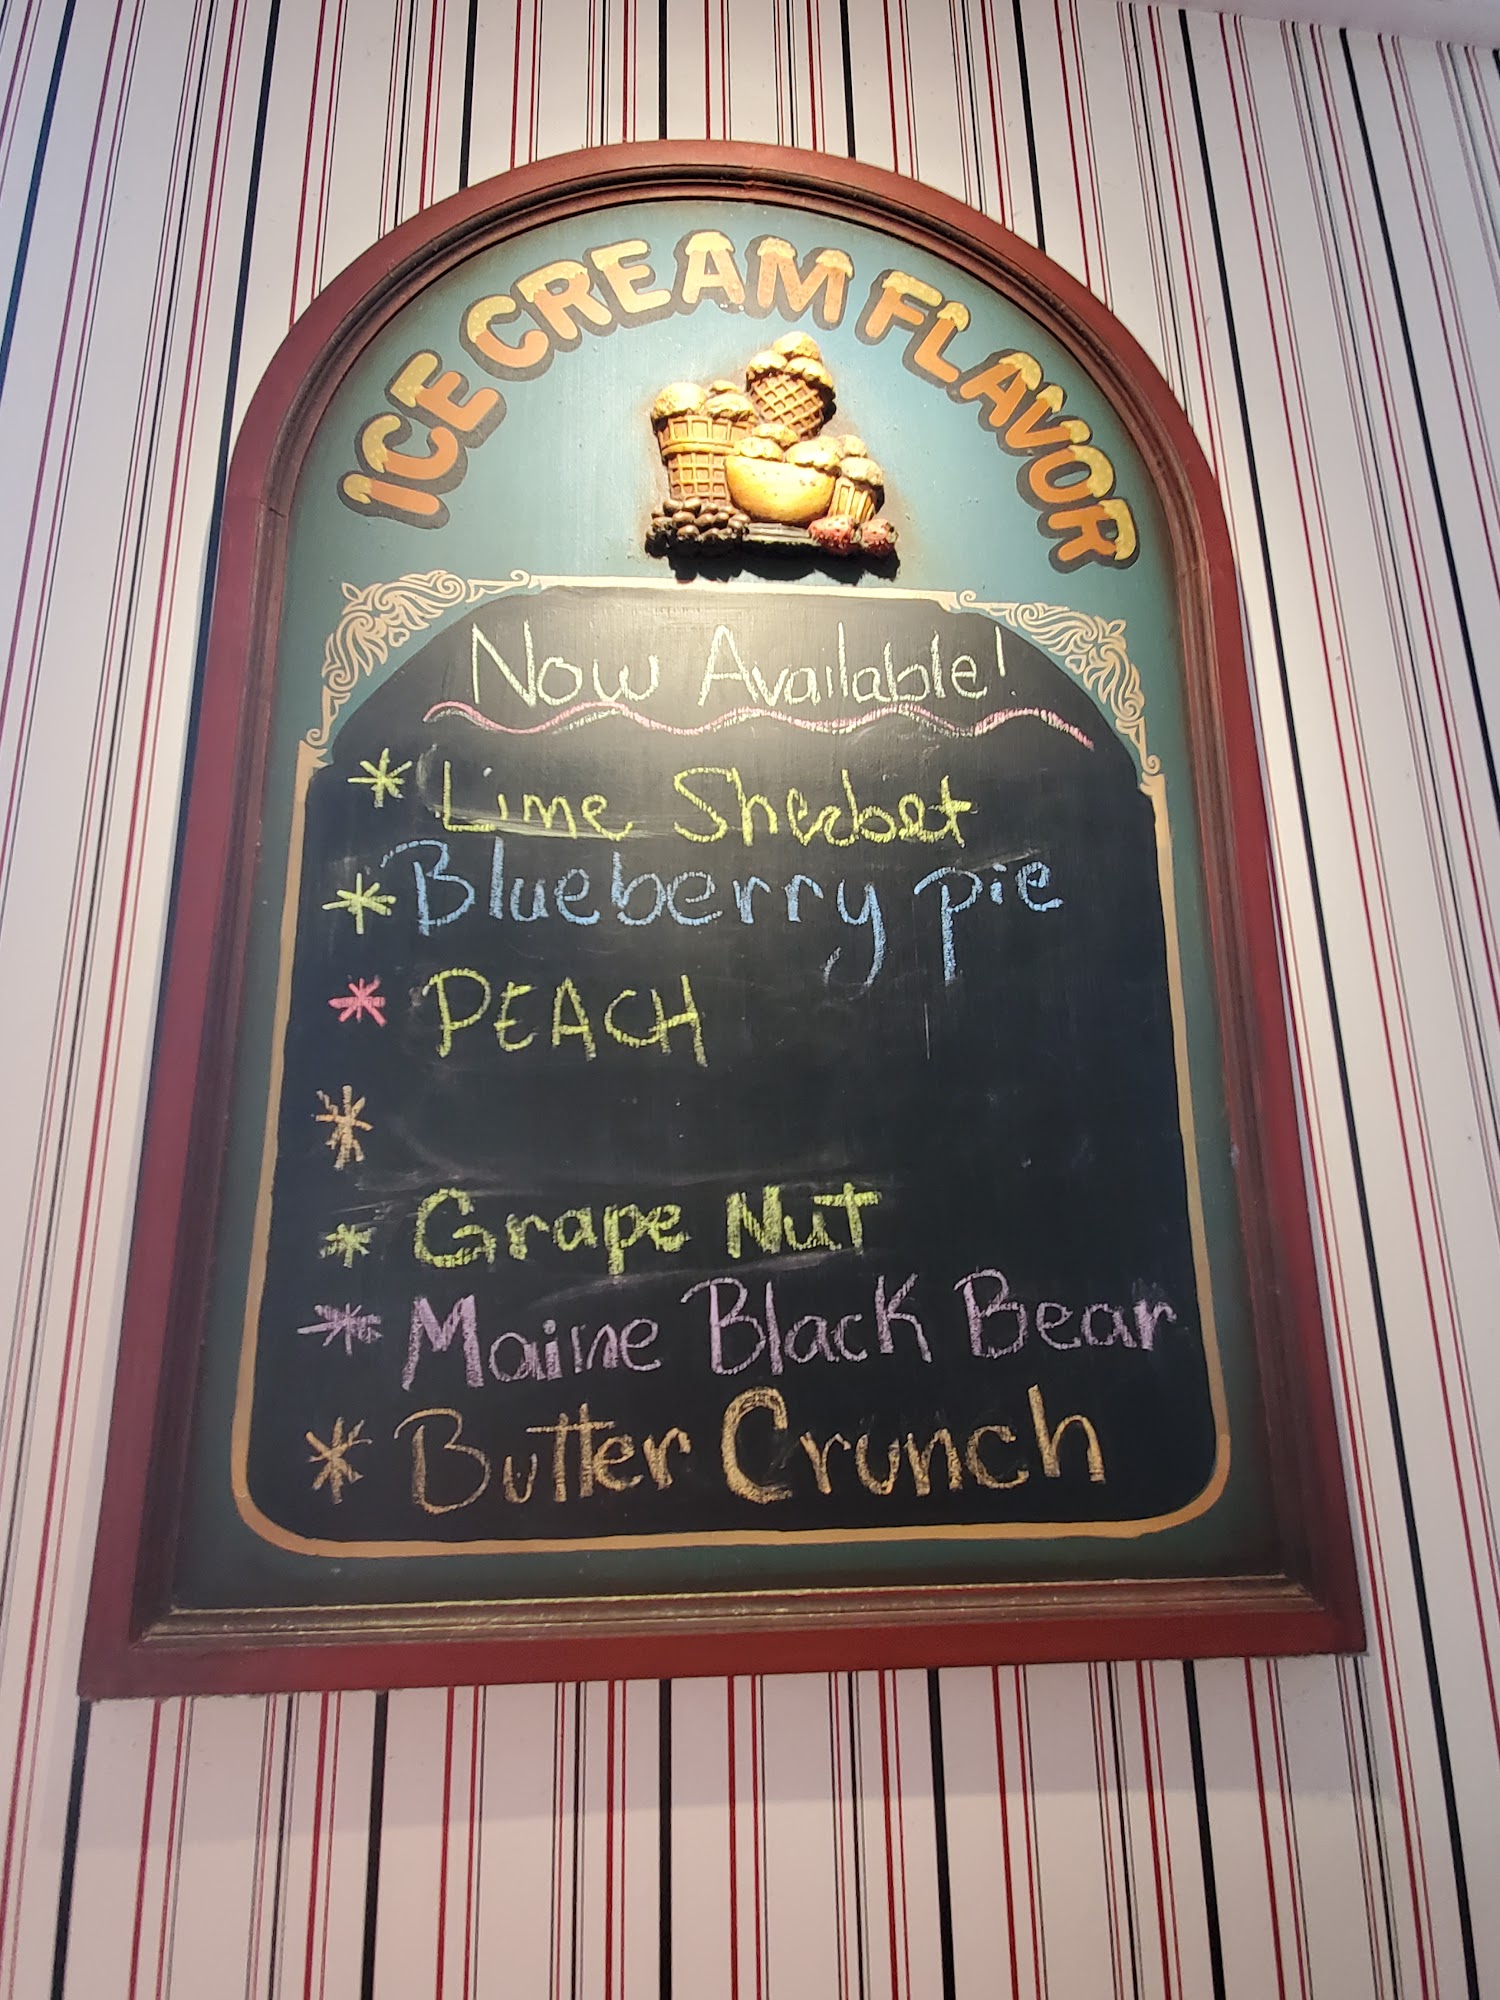 ICE CREAM FLAVOR
Now Available!
* Lime Sherbet
* Blueberry pie
* PEACH
*
* Grape Nut
* Maine Black Bear
* Butter Crunch